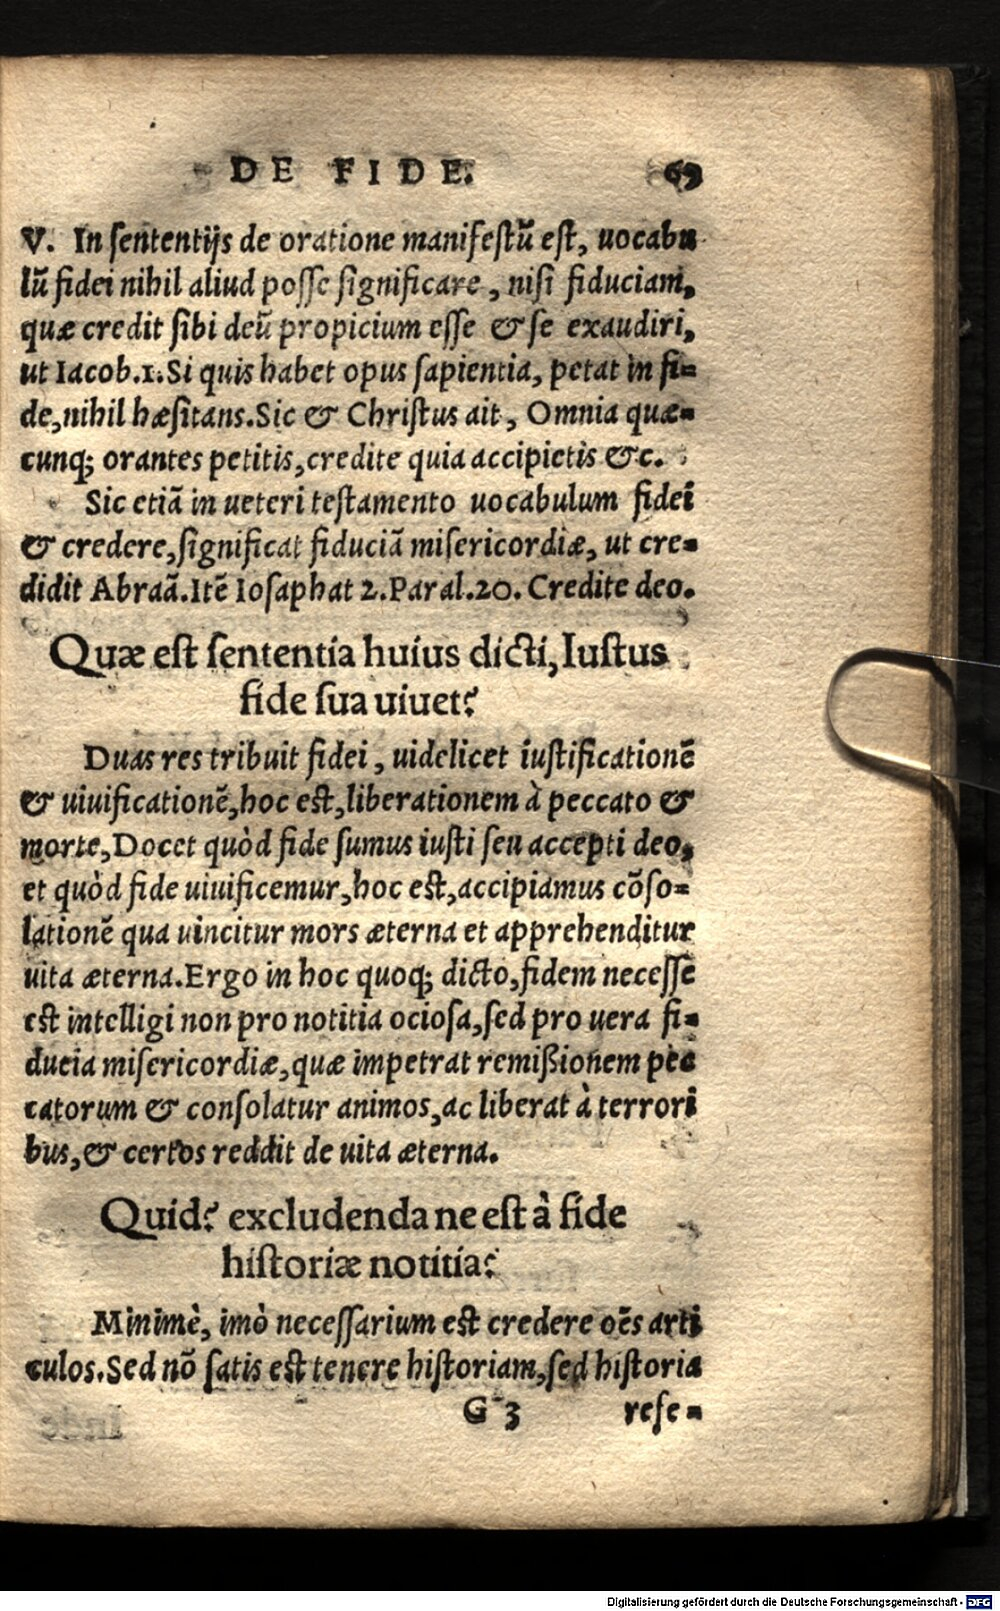 DE FIDE. 69
V. In sententijs de oratione manifestũ est, uocabu
lũ fidei nihil aliud posse significare, nisi fiduciam,
quæ credit sibi deũ propicium esse & se exaudiri,
ut Iacob.1. Si quis habet opus sapientia, petat in fi=
de, nihil hæsitans. Sic & Christus ait, Omnia quæ=
cunq; orantes petitis, credite quia accipietis &c.
Sic etiã in ueteri testamento uocabulum fidei
& credere, significat fiduciã misericordiæ, ut cre=
didit Abraã. Itẽ Iosaphat 2. Paral.20. Credite deo.
Quæ est sententia huius dicti, Iustus
fide sua uiuet?
Duas res tribuit fidei, uidelicet iustificationẽ
& uiuificationẽ, hoc est, liberationem à peccato &
morte, Docet quòd fide sumus iusti seu accepti deo,
et quòd fide uiuificemur, hoc est, accipiamus cõso=
lationẽ qua uincitur mors æterna et apprehenditur
uita æterna. Ergo in hoc quoq; dicto, fidem necesse
est intelligi non pro notitia ociosa, sed pro uera fi=
ducia misericordiæ, quæ impetrat remißionem pec
catorum & consolatur animos, ac liberat à terrori
bus, & certos reddit de uita æterna.
Quid? excludenda ne est à fide
historiæ notitia?
Minimè, imò necessarium est credere oẽs arti
culos. Sed nõ satis est tenere historiam, sed historia
G 3 rese=
Digitalisierung gefördert durch die Deutsche Forschungsgemeinschaft - DFG